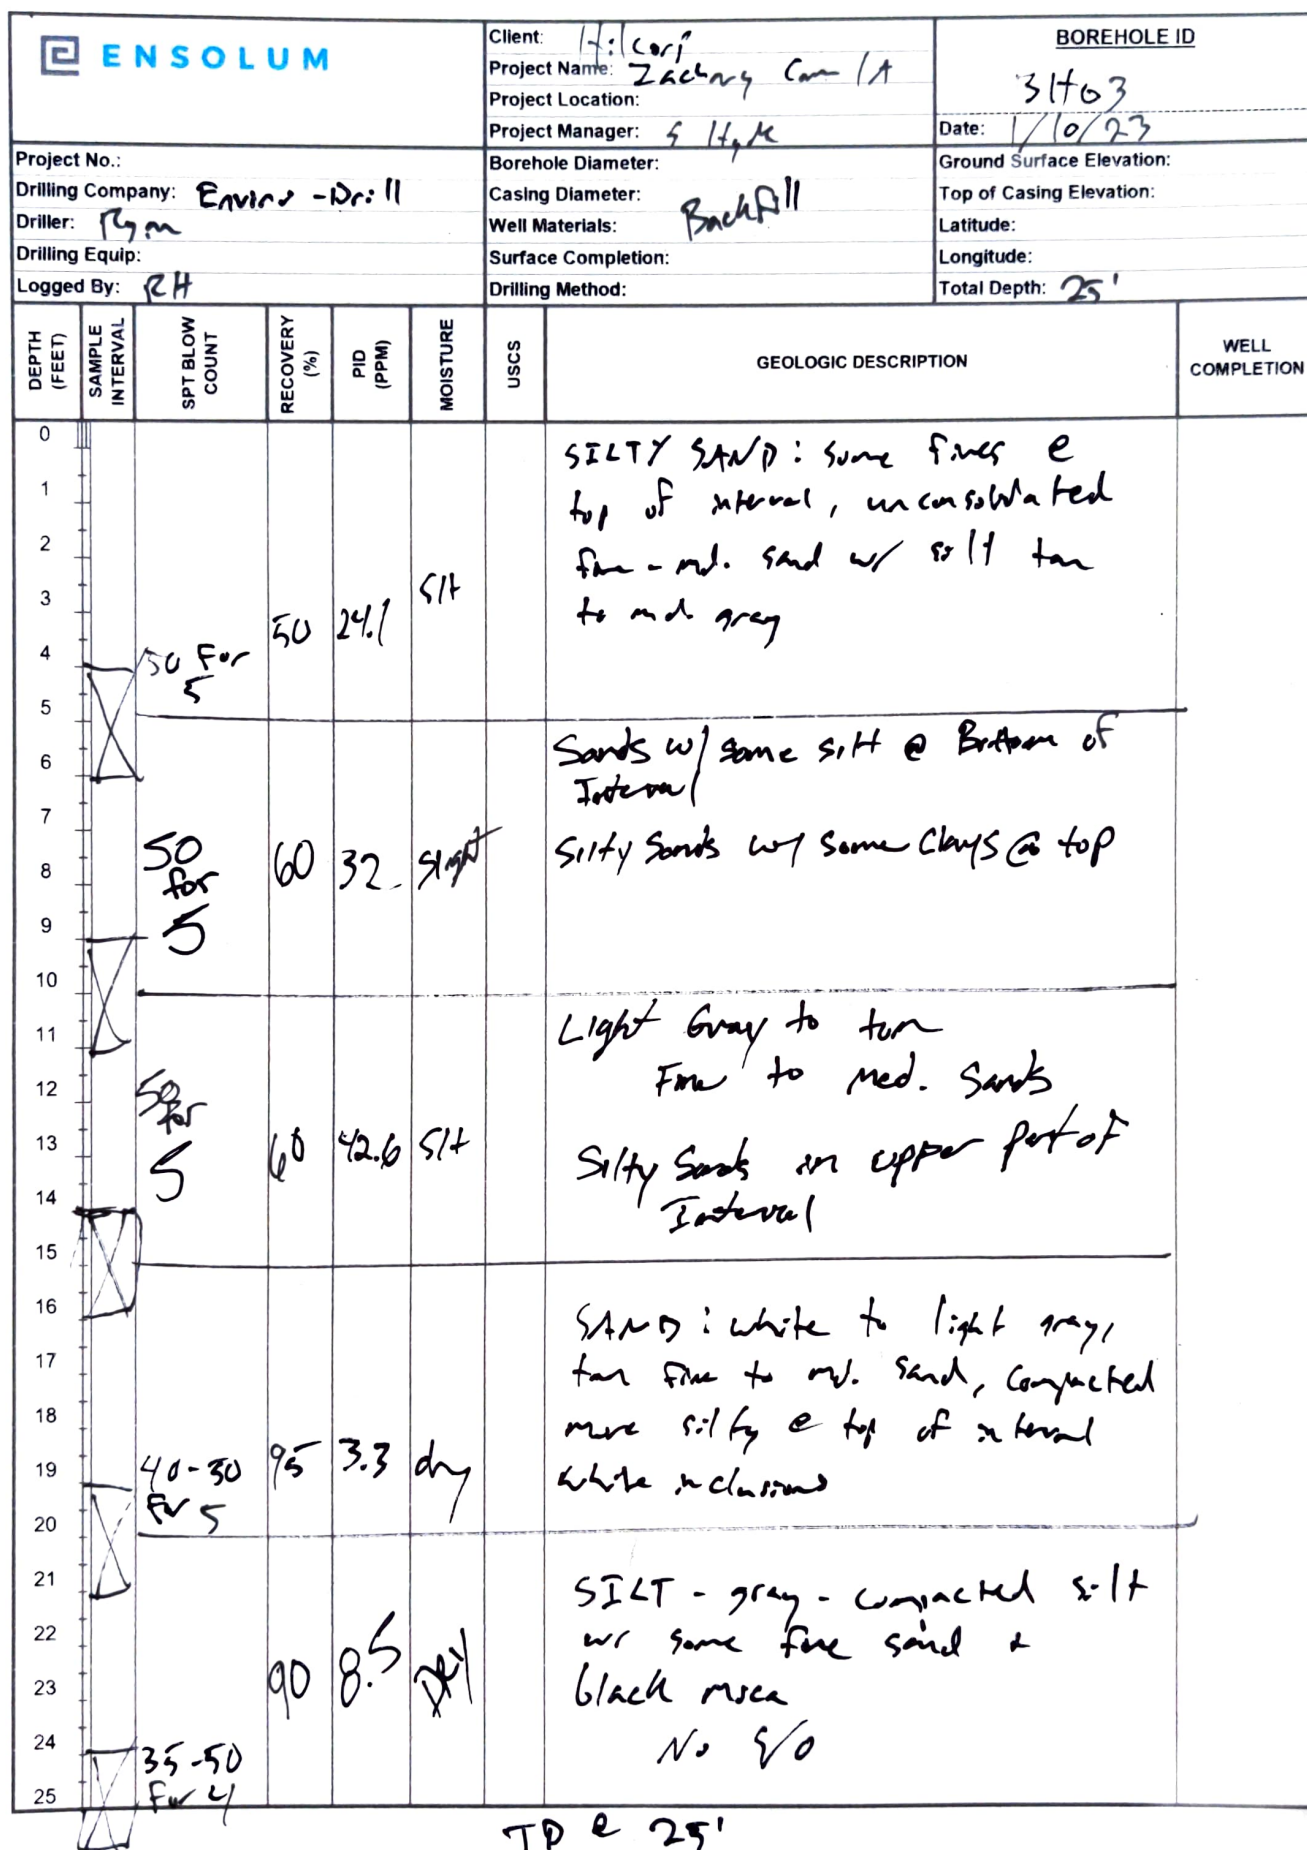 ENSOLUM
Client: Hilcorp
Project Name: Zachry Com 1A
Project Location:
Project Manager: S Hyde
BOREHOLE ID
3H03
Date: 1/10/23
Project No.:
Drilling Company: Enviro-Drill
Driller: Ryan
Drilling Equip:
Logged By: RH
Borehole Diameter:
Casing Diameter:
Well Materials: Backfill
Surface Completion:
Drilling Method:
Ground Surface Elevation:
Top of Casing Elevation:
Latitude:
Longitude:
Total Depth: 25'
DEPTH (FEET)
SAMPLE INTERVAL
SPT BLOW COUNT
RECOVERY (%)
PID (PPM)
MOISTURE
USCS
GEOLOGIC DESCRIPTION
WELL COMPLETION
0
1
2
3
4
5
50 For
5
50
24.1
Slt
SILTY SAND: some fines @
top of interval, unconsolidated
fine-md. sand w/ silt tan
to md. gray
6
7
8
9
10
50
for
5
60
32
Slight
Sands w/ some silt @ Bottom of
Interval
Silty Sands w/ some Clays @ top
11
12
13
14
15
50
for
5
60
42.6
Slt
Light Gray to tan
Fine to Med. Sands
Silty Sands in upper part of
Interval
16
17
18
19
20
40-50
For 5
95
3.3
dry
SAND: white to light gray,
tan fine to md. sand, compacted
more silty @ top of interval
white inclusions
21
22
23
24
25
35-50
For 4
90
8.5
DRY
SILT - gray - compacted silt
w/ some fine sand +
black mica
No S/O
TD @ 25'